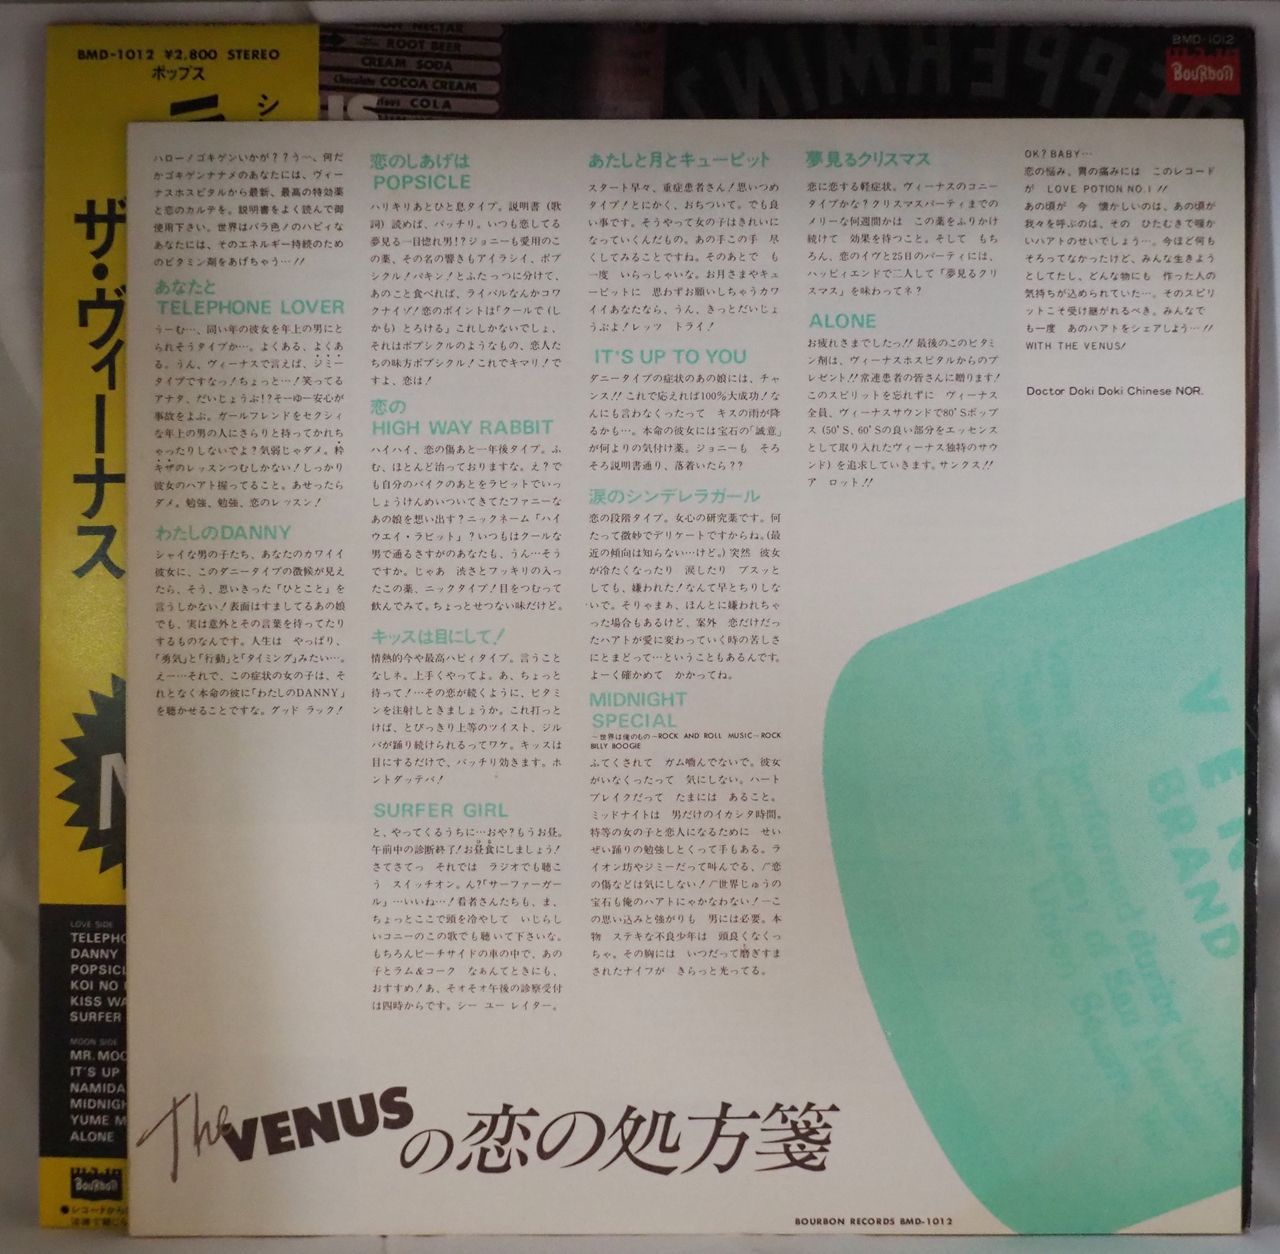 BMD-1012 ¥2,800 STEREO
ポップス
ザ・ヴィーナス
NECTAR
ROOT BEER
CREAM SODA
Chocolate COCOA CREAM
COLA
BMD-1012
BOURBON
ハロー!ゴキゲンいかが??う一、何だ
かゴキゲンナナメのあなたには、ヴィー
ナスホスピタルから最新、最高の特効薬
と恋のカルテを。説明書をよく読んで御
使用下さい。世界はバラ色ノのハピィな
あなたには、そのエネルギー持続のため
のビタミン剤をあげちゃう…!!
あなたと
TELEPHONE LOVER
うーむ…、同い年の彼女を年上の男にと
られそうタイプか…。よくある、よくあ
る。うん、ヴィーナスで言えば、ジミー
タイプですなっ!ちょっと…!笑ってる
アナタ、だいじょうぶ!?そーゆー安心が
事故をよぶ。ガールフレンドをセクシィ
な年上の男の人にさらりと持ってかれち
ゃったりしないでよ?気弱じゃダメ。粋
キザのレッスンつむしかない!しっかり
彼女のハアト握ってること。あせったら
ダメ。勉強、勉強、恋のレッスン!
わたしのDANNY
シャイな男の子たち、あなたのカワイイ
彼女に、このダニータイプの徴候が見え
たら、そう、思いきった「ひとこと」を
言うしかない!表面はすましてるあの娘
でも、実は意外とその言葉を待ってたり
するものなんです。人生は やっぱり、
「勇気」と「行動」と「タイミング」みたい…。
えー…それで、この症状の女の子は、そ
れとなく本命の彼に「わたしのDANNY」
を聴かせることですな。グッド ラック!
恋のしあげは
POPSICLE
ハリキリあとひと息タイプ。説明書(歌
詞)読めば、バッチリ。いつも恋してる
夢見る一目惚れ男!!?ジョニーも愛用のこ
の薬、その名の響きもアイラシイ、ポプ
シクル!パキン!とふたっつに分けて、
あのこと食べれば、ライバルなんかコワ
クナイゾ!恋のポイントは「クールで(し
かも)とろける」これしかないでしょ、
それはポプシクルのようなもの、恋人た
ちの味方ポプシクル!これでキマリ!で
すよ、恋は!
恋の
HIGH WAY RABBIT
ハイハイ、恋の傷あと一年後タイプ。ふ
む、ほとんど治っておりますな。え?で
も自分のバイクのあとをラビットでいっ
しょうけんめいついてきてたファニーな
あの娘を想い出す?ニックネーム「ハイ
ウエイ・ラビット」?いつもはクールな
男で通るさすがのあなたも、うん…そう
ですか。じゃあ 渋さとフッキリの入っ
たこの薬、ニックタイプ!目をつむって
飲んでみて。ちょっとせつない味だけど。
キッスは目にして!
情熱的今や最高ハピィタイプ。言うこと
なしネ。上手くやってよ。あ、ちょっと
待って!…その恋が続くように、ビタミ
ンを注射しときましょうか。これ打っと
けば、とびっきり上等のツイスト、ジル
バが踊り続けられるってワケ。キッスは
目にするだけで、バッチリ効きます。ホ
ントダッテバ!
SURFER GIRL
と、やってくるうちに…おや?もうお昼。
午前中の診断終了!お昼食にしましょう!
さてさてっ それでは ラジオでも聴こ
う スイッチオン。ん?「サーファーガー
ル」…いいね…!看者さんたちも、ま、
ちょっとここで頭を冷やして いじらし
いコニーのこの歌でも聴いて下さいな。
もちろんビーチサイドの車の中で、あの
子とラム&コーク なぁんてときにも、
おすすめ!あ、そオそオ午後の診察受付
は四時からです。シー ユー レイター。
あたしと月とキューピット
スタート早々、重症患者さん!思いつめ
タイプ!とにかく、おちついて。でも良
い事です。そうやって女の子はきれいに
なっていくんだもの。あの手この手 尽
くしてみることですね。そのあとで も
一度 いらっしゃいな。お月さまやキュ
ーピットに 思わずお願いしちゃうカワ
イイあなたなら、うん、きっとだいじょ
うぶよ!レッツ トライ!
IT'S UP TO YOU
ダニータイプの症状のあの娘には、チャ
ンス!!これで応えれば100%大成功!な
んにも言わなくったって キスの雨が降
るかも…。本命の彼女には宝石の「誠意」
が何よりの気付け薬。ジョニーも そろ
そろ説明書通り、落着いたら??
涙のシンデレラガール
恋の段階タイプ。女心の研究薬です。何
たって微妙でデリケートですからね。(最
近の傾向は知らない…けど。)突然 彼女
が冷たくなったり 涙したり ブスッと
しても、嫌われた!なんて早とちりしな
いで。そりゃまぁ、ほんとに嫌われちゃ
った場合もあるけど、案外 恋だけだっ
たハアトが愛に変わっていく時の苦しさ
にとまどって…ということもあるんです。
よーく確かめて かかってね。
MIDNIGHT
SPECIAL
〜世界は俺のもの〜ROCK AND ROLL MUSIC〜ROCK
BILLY BOOGIE
ふてくされて ガム噛んでないで。彼女
がいなくったって 気にしない。ハート
ブレイクだって たまには あること。
ミッドナイトは 男だけのイカシタ時間。
特等の女の子と恋人になるために せい
ぜい踊りの勉強しとくって手もある。ラ
イオン坊やジミーだって叫んでる、「恋
の傷などは気にしない!「世界じゅうの
宝石も俺のハアトにゃかなわない!一こ
の思い込みと強がりも 男には必要。本
物 ステキな不良少年は 頭良くなくっ
ちゃ。その胸には いつだって磨ぎすま
されたナイフが きらっと光ってる。
夢見るクリスマス
恋に恋する軽症状。ヴィーナスのコニー
タイプかな?クリスマスパーティまでの
メリーな何週間かは この薬をふりかけ
続けて 効果を待つこと。そして もち
ろん、恋のイヴと25日のパーティには、
ハッピィエンドで二人して「夢見るクリ
スマス」を味わってネ?
ALONE
お疲れさまでしたっ!!最後のこのビタミ
ン剤は、ヴィーナスホスピタルからのプ
レゼント!!常連患者の皆さんに贈ります!
このスピリットを忘れずに ヴィーナス
全員、ヴィーナスサウンドで80'Sポップ
ス(50'S、60'Sの良い部分をエッセンス
として取り入れたヴィーナス独特のサウ
ンド)を追求していきます。サンクス!!
ア ロット!!
OK?BABY…
恋の悩み、胃の痛みには このレコード
が LOVE POTION NO.1!!
あの頃が 今 懐かしいのは、あの頃が
我々を呼ぶのは、その ひたむきで暖か
いハアトのせいでしょう…。今ほど何も
そろってなかったけど、みんな生きよう
としてたし、どんな物にも 作った人の
気持ちが込められていた…。そのスピリ
ットこそ受け継がれるべき。みんなで
も一度 あのハアトをシェアしよう…!!
WITH THE VENUS!
Doctor Doki Doki Chinese NOR.
VEN
BRAND
LOVE SIDE
TELEPHO
DANNY
POPSICL
KOI NO
KISS WA
SURFER
MOON SIDE
MR. MOO
IT'S UP
NAMIDA
MIDNIGH
YUME M
ALONE
BOURBON
●レコードから
The VENUSの恋の処方箋
BOURBON RECORDS BMD-1012